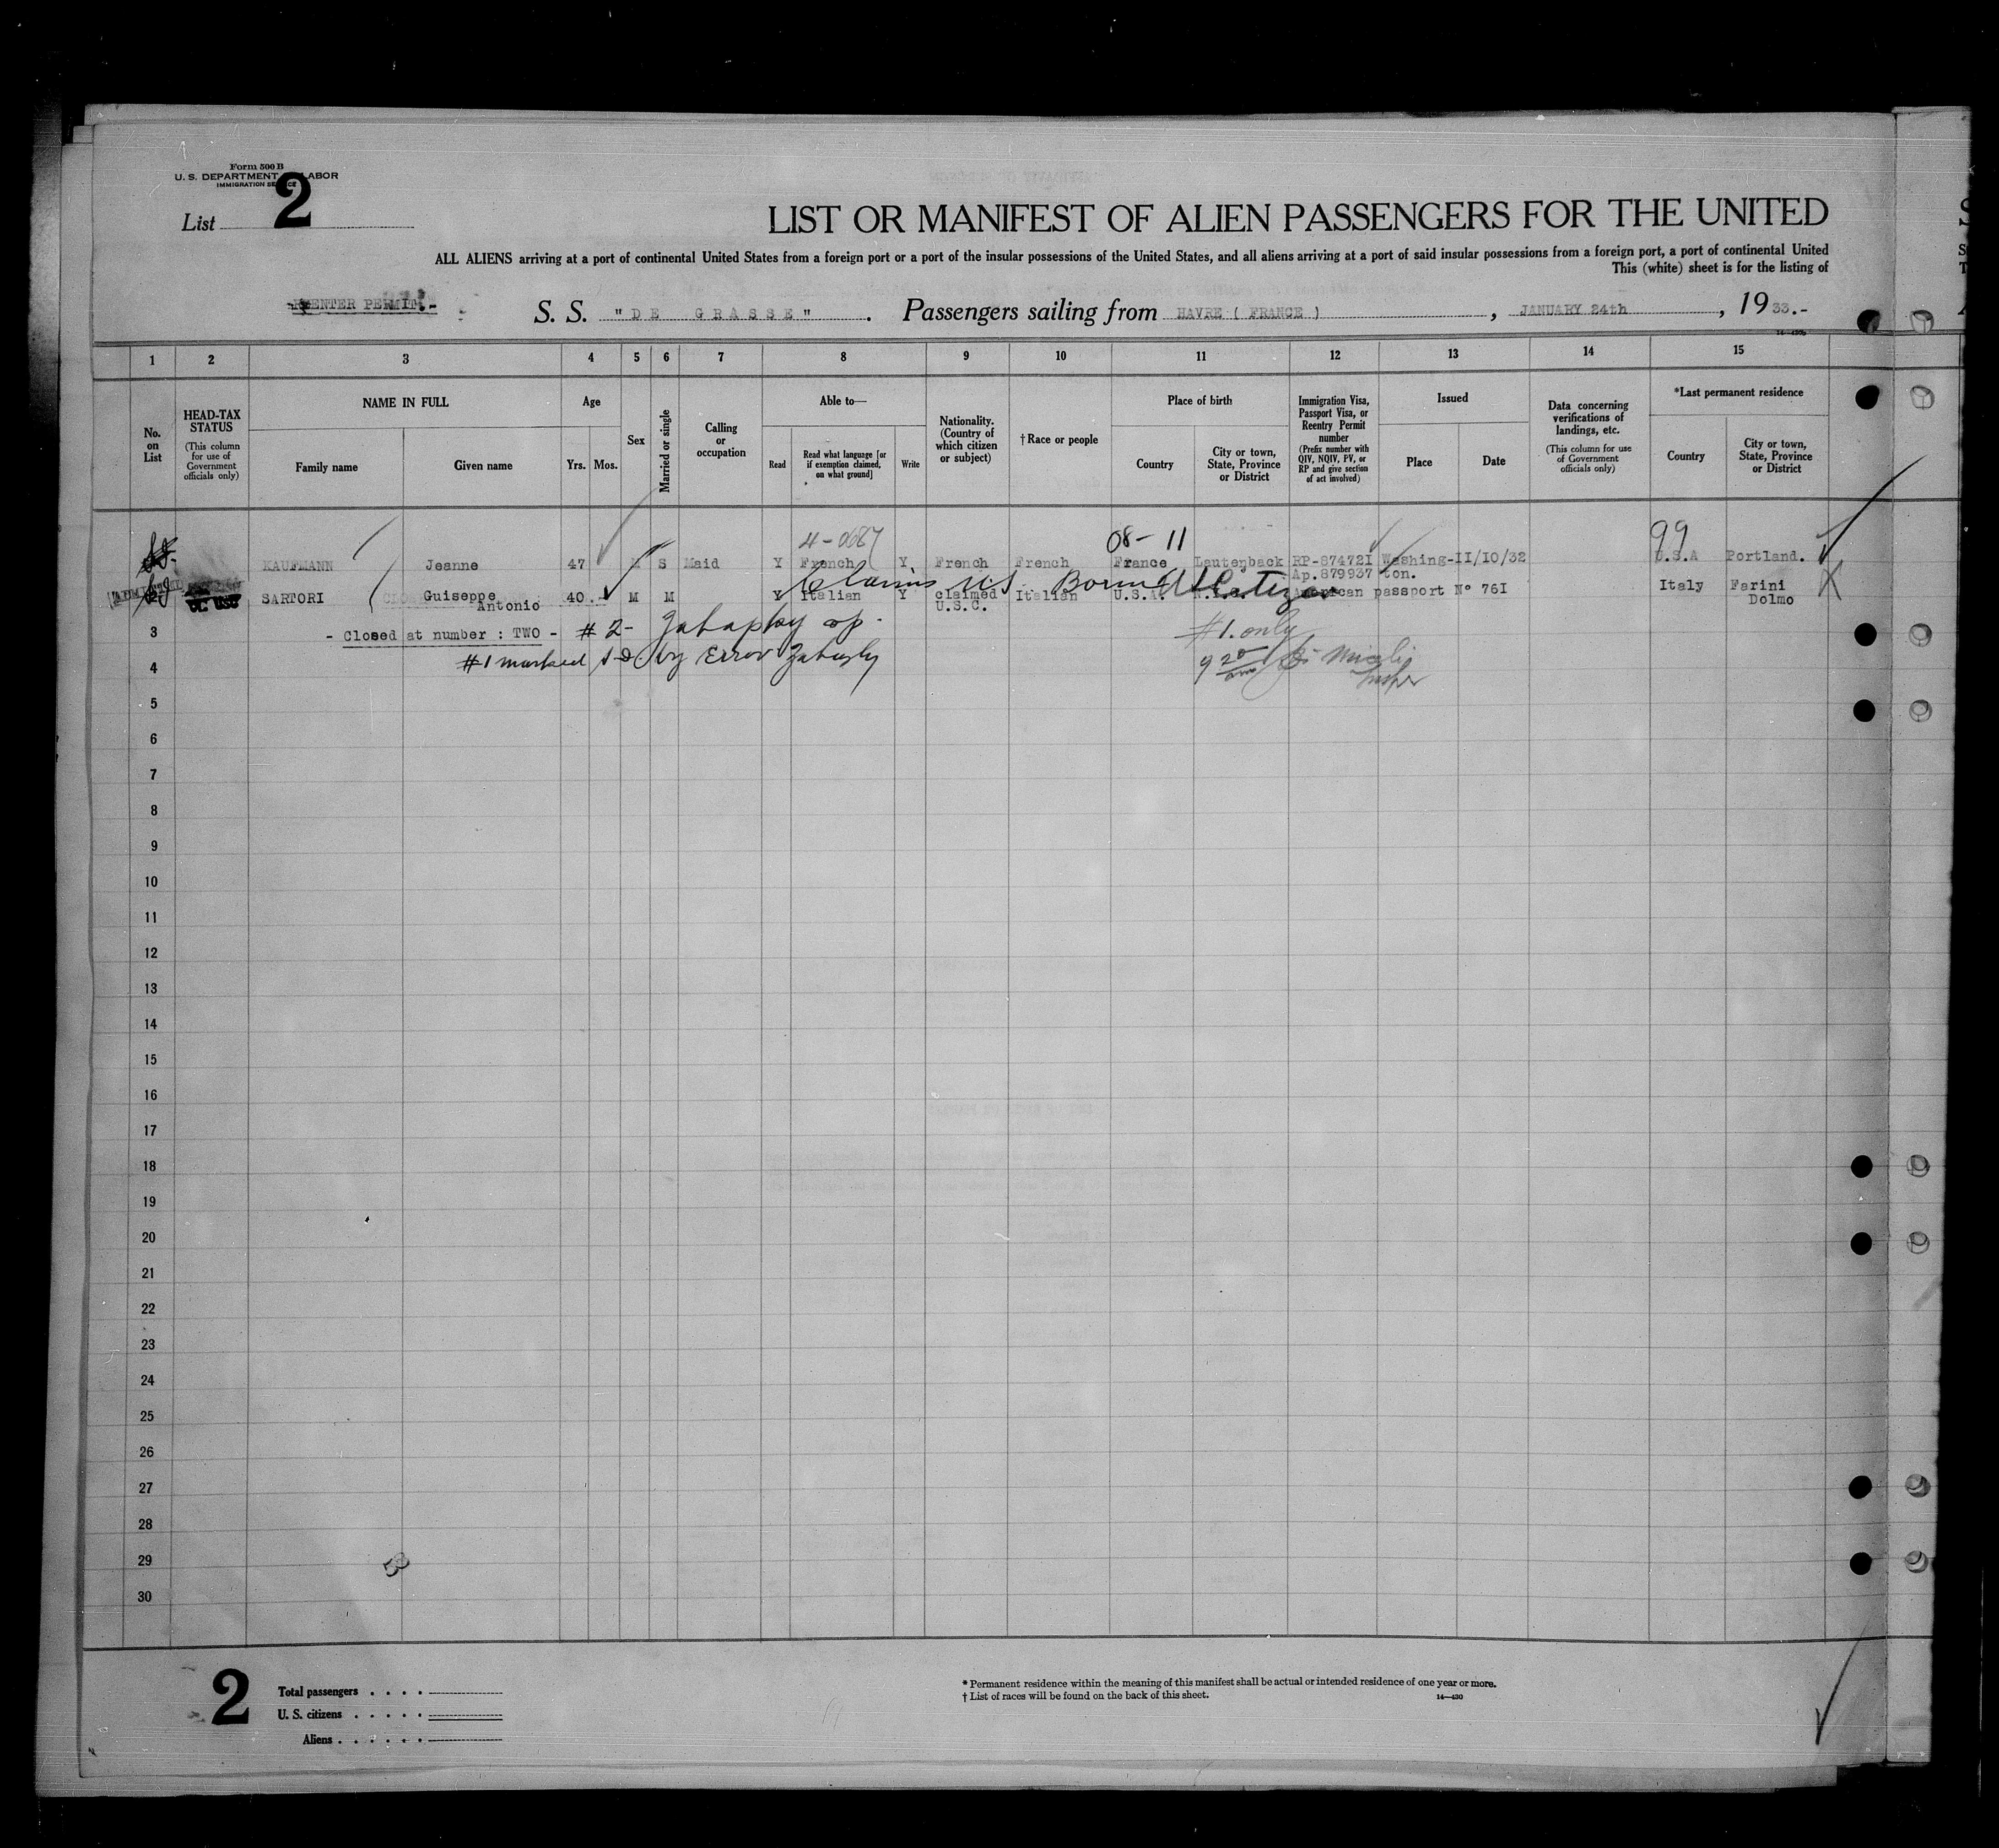 Form 500 B
U. S. DEPARTMENT LABOR
IMMIGRATION SERVICE
List 2
LIST OR MANIFEST OF ALIEN PASSENGERS FOR THE UNITED
ALL ALIENS arriving at a port of continental United States from a foreign port or a port of the insular possessions of the United States, and all aliens arriving at a port of said insular possessions from a foreign port, a port of continental United
This (white) sheet is for the listing of
REENTER PERMIT.-
S. S. "DE GRASSE". Passengers sailing from HAVRE ( FRANCE ), JANUARY 24th, 1933.-
1 2 3 4 5 6 7 8 9 10 11 12 13 14 15
No. on List
HEAD-TAX STATUS
(This column for use of Government officials only)
NAME IN FULL
Family name
Given name
Age
Yrs. Mos.
Sex
Married or single
Calling or occupation
Able to—
Read
Read what language [or if exemption claimed, on what ground]
Write
Nationality. (Country of which citizen or subject)
†Race or people
Place of birth
Country
City or town, State, Province or District
Immigration Visa, Passport Visa, or Reentry Permit number
(Prefix number with QIV, NQIV, PV, or RP and give section of act involved)
Issued
Place
Date
Data concerning verifications of landings, etc.
(This column for use of Government officials only)
*Last permanent residence
Country
City or town, State, Province or District
4-0687 08-11 99
KAUFMANN Jeanne 47 S Maid Y French Y French French France Lautenback RP-874721 Washing- II/10/32 U.S.A Portland.
Ap.879937 ton.
Claims U.S. Born Citizen
SARTORI Guiseppe 40. M M Y Italian Y claimed Italian U.S.A. American passport N° 761 Italy Farini
Antonio U.S.C. Dolmo
3 - Closed at number : TWO - #2- #1. only
4 #1 marked by Error 9 20
5
6
7
8
9
10
11
12
13
14
15
16
17
18
19
20
21
22
23
24
25
26
27
28
29
30
53
2
Total passengers . . . .
U. S. citizens . . . . .
Aliens . . . . . .
* Permanent residence within the meaning of this manifest shall be actual or intended residence of one year or more.
† List of races will be found on the back of this sheet.
14—430